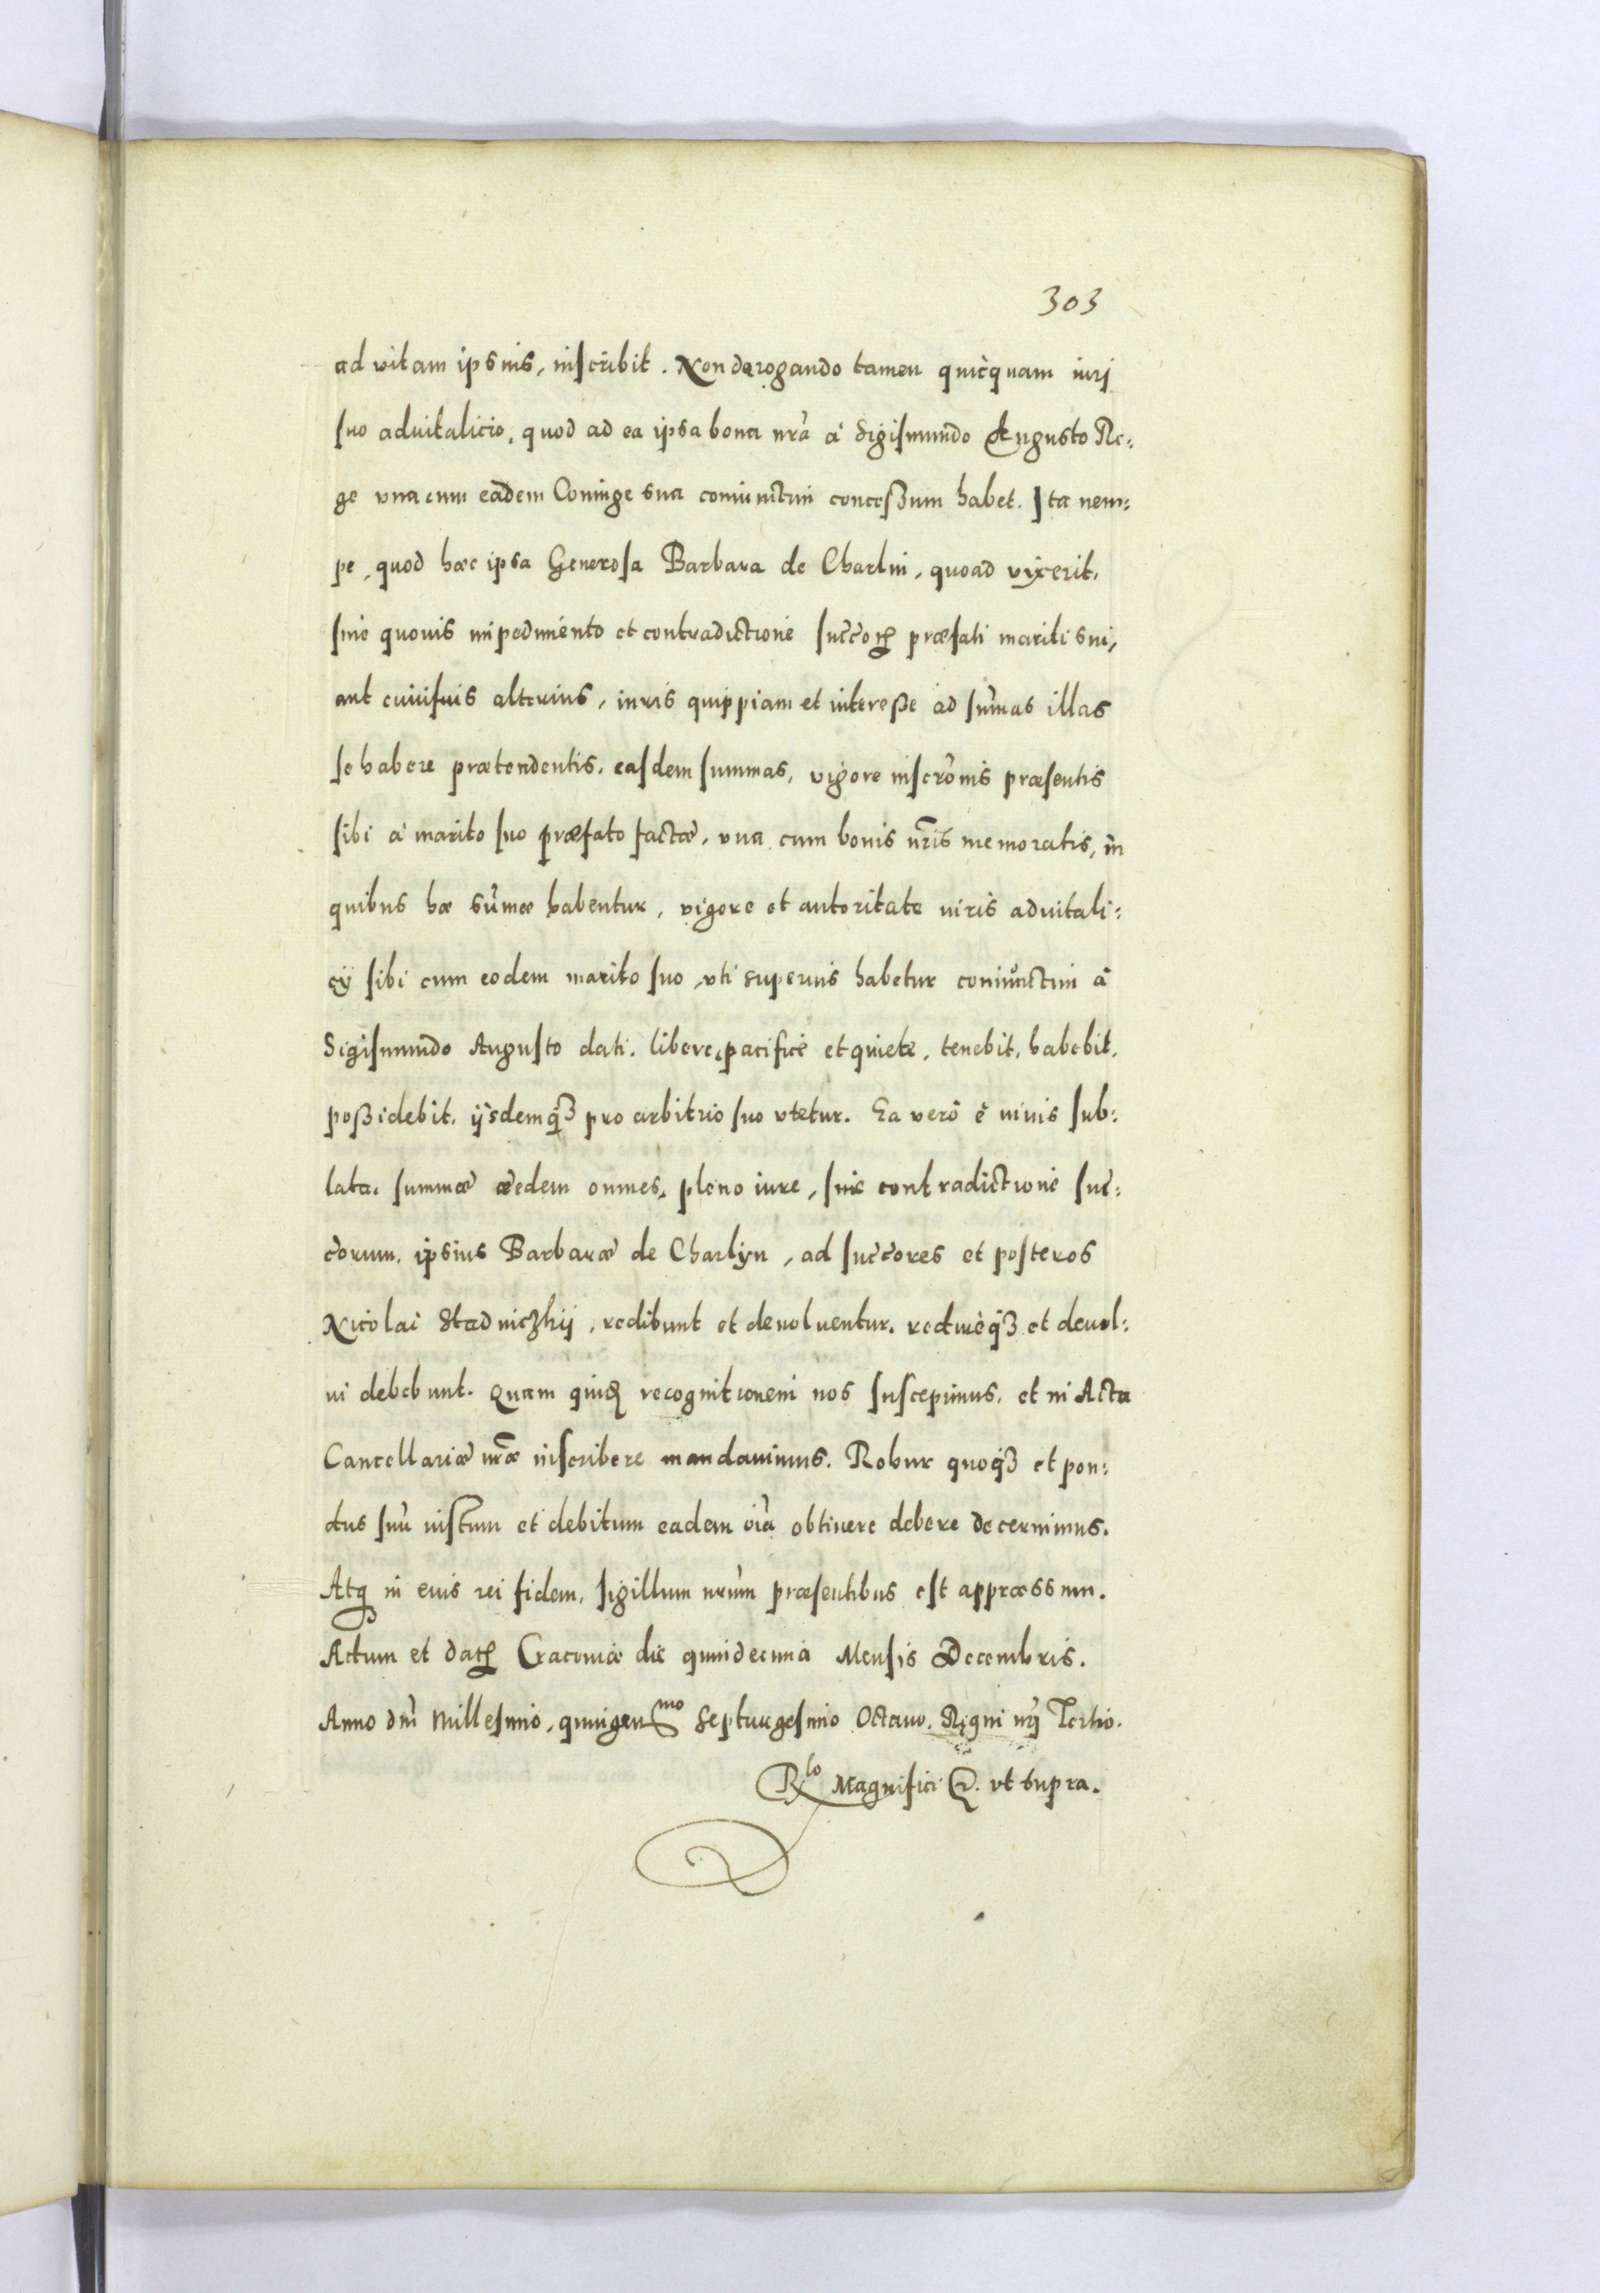 303
ad vitam ipsius, inscribit. Non derogando tamen quicquam iuri
suo aduitalicio, quod ad ea ipsa bona nra à Sigismundo Augusto Re:
ge vna cum eadem Coniuge sua coniunctim concessum habet. Ita nem:
pe, quod hæc ipsa Generosa Barbara de Charlin, quoad vixerit,
sine quouis impedimento et contradictione succorum præfati mariti sui,
aut cuiusuis alterius, iuris quippiam et interesse ad sumas illas
se habere prætendentis, easdem summas, vigore inscronis præsentis
sibi à marito suo præfato factæ, vna cum bonis nris memoratis, in
quibus hæ sumæ habentur, vigore et autoritate iuris aduitali:
cij sibi cum eodem marito suo, vti superius habetur coniunctim à
Sigismundo Augusto dati, libere, pacifice et quiete, tenebit, habebit,
possidebit, ijsdemq3 pro arbitrio suo vtetur. Ea verò è viuis sub:
lata, summæ eædem omnes, pleno iure, sine contradictione suc:
corum, ipsius Barbaræ de Charlyn, ad succores et posteros
Nicolai Stadniczhij, redibunt et deuoluentur, redireq3 et deuol:
ui debebunt. Quam quidem recognitionem nos suscepimus, et in Acta
Cancellariæ nræ inscribere mandauimus. Robur quoq3 et pon:
dus suu iustum et debitum eadem oia obtinere debere decernimus.
Atq in cuius rei fidem, sigillum nrum præsentibus est appræssum.
Actum et datum Cracouiæ die quindecima Mensis Decembris.
Anno dni Millesimo, quingenmo Septuagesimo Octauo, Regni nri Tertio.
Rlo Magnifici etc. vt supra.